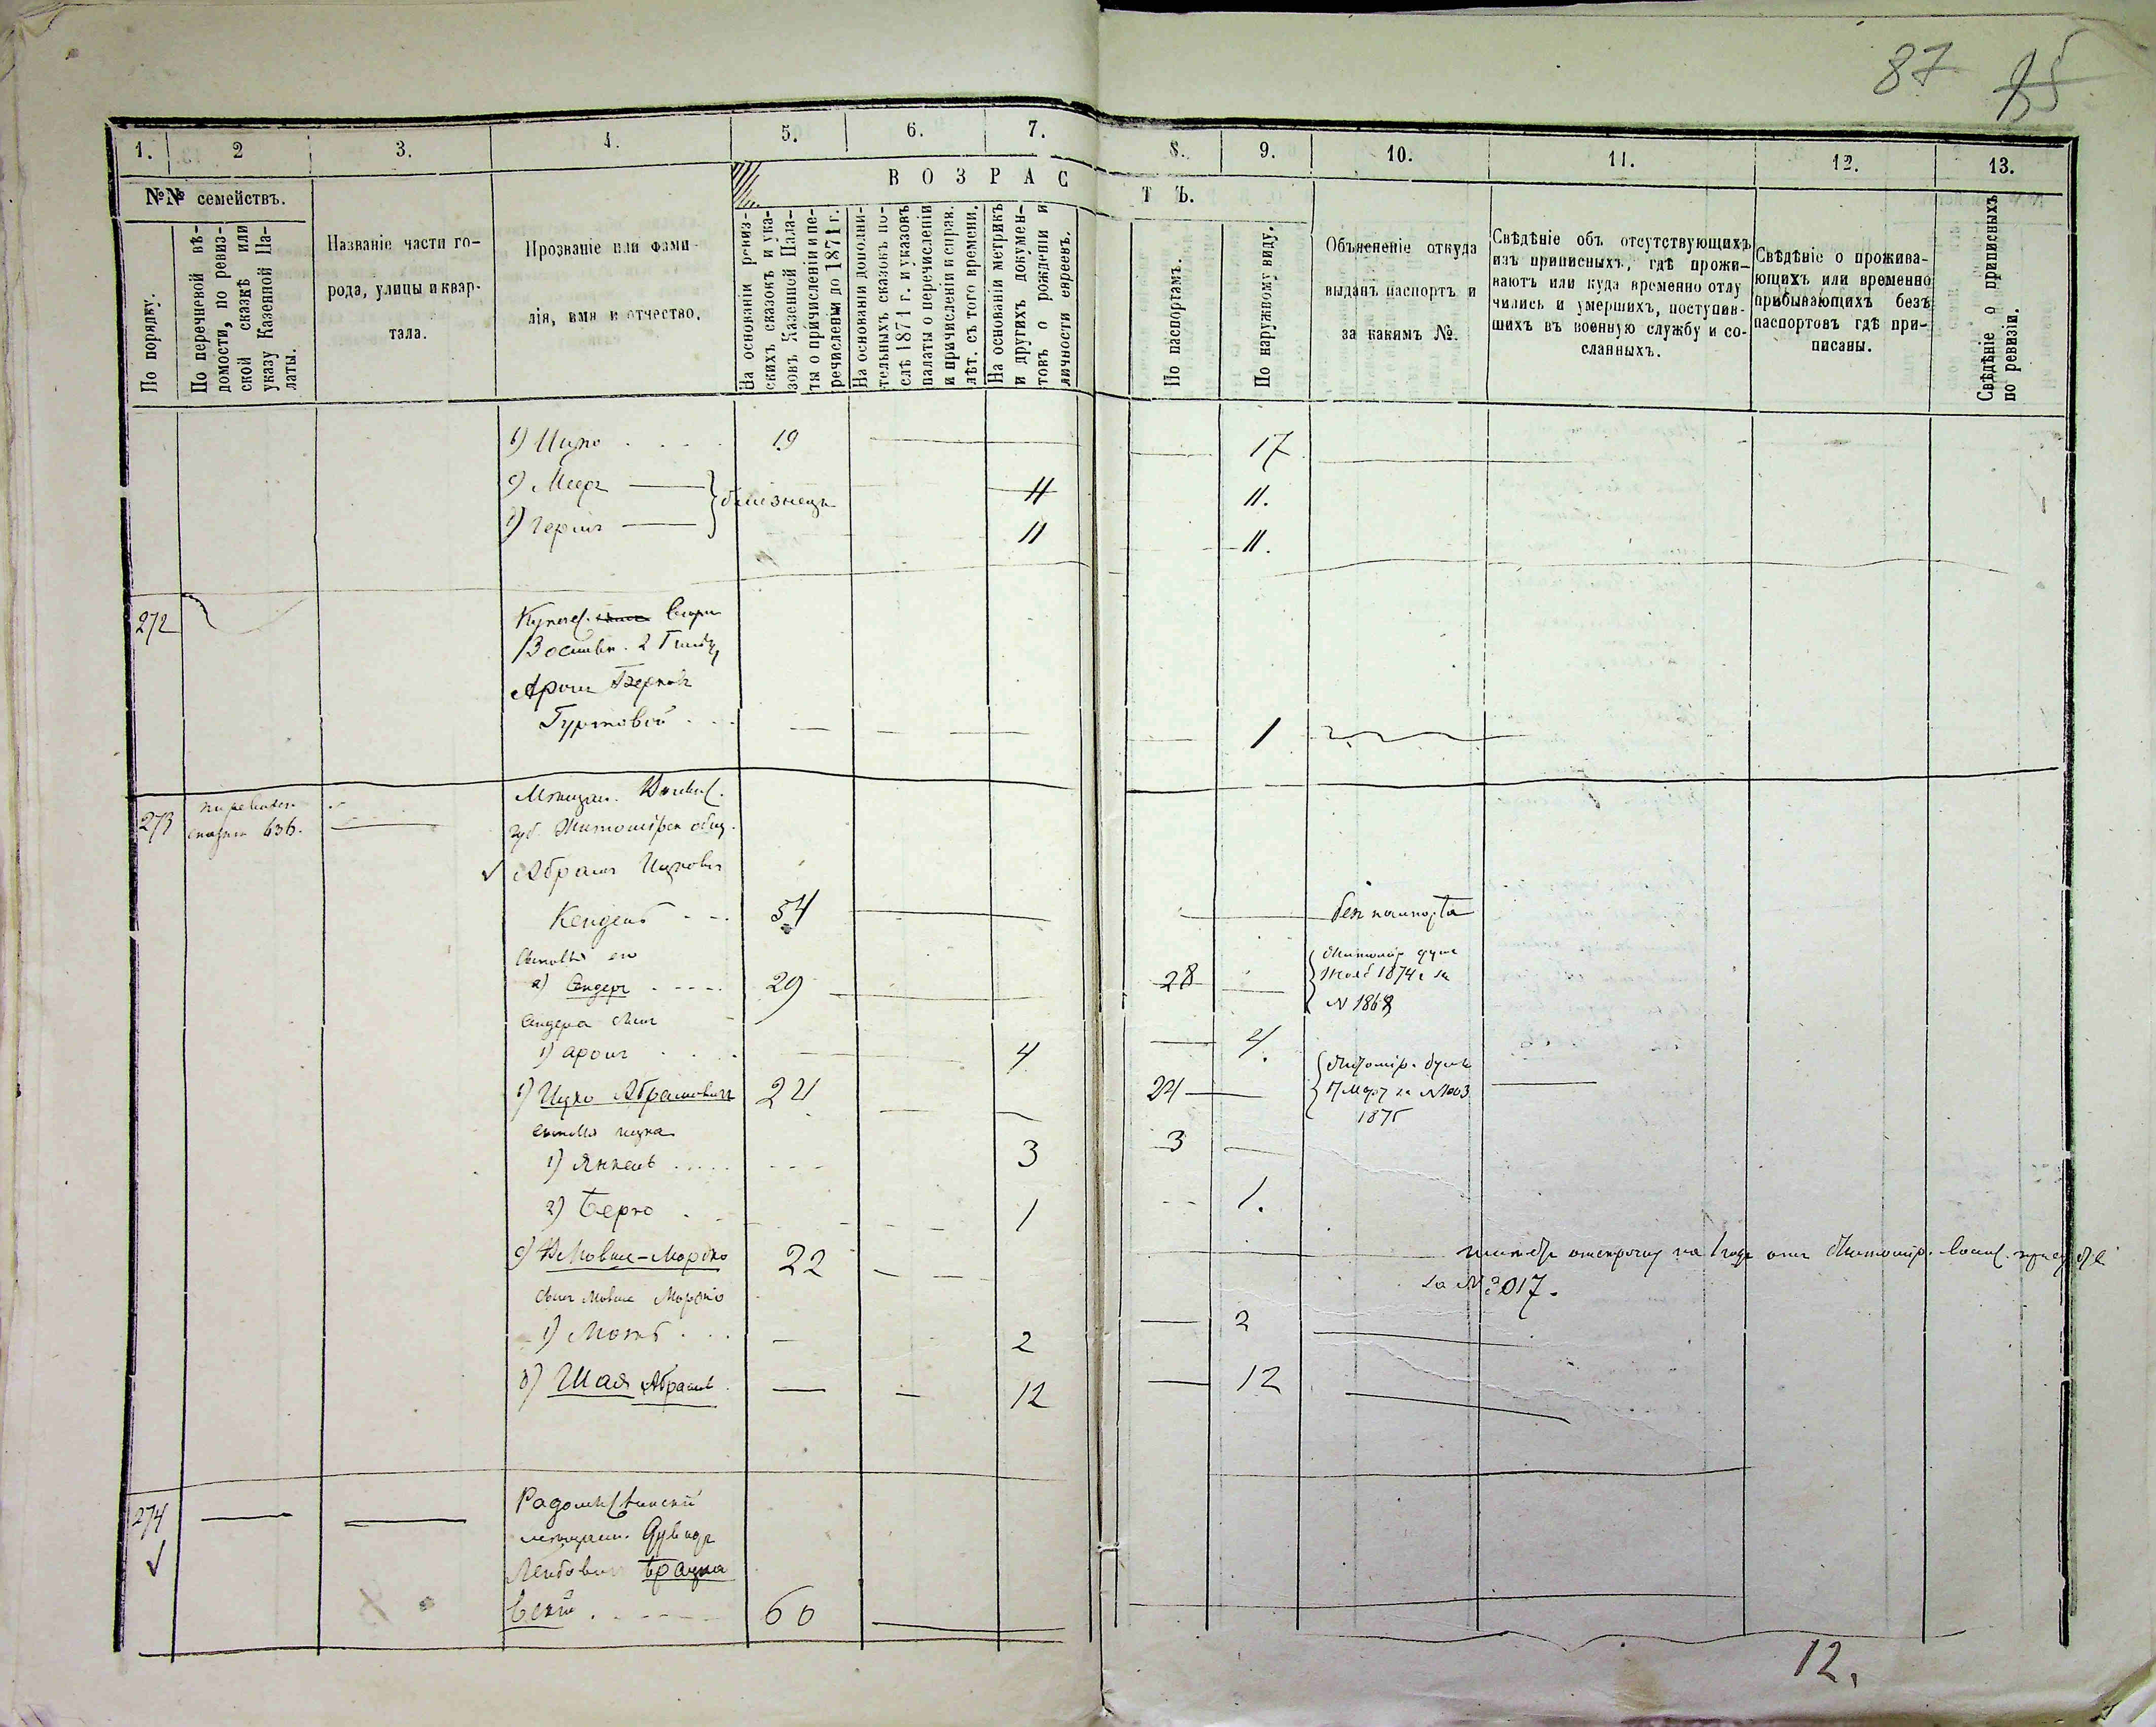 87 85
1. 2 3. 4. 5. 6. 7. 8. 9. 10. 11. 12. 13.
№№ семействъ.
По порядку.
По перечневой вѣ-
домости, по ревиз-
ской сказкѣ или
указу Казенной Па-
латы.
Названіе части го-
рода, улицы и квар-
тала.
Прозваніе или фами-
лія, имя и отчество.
ВОЗРАСТЪ.
На основаніи ревиз-
скихъ сказокъ и ука-
зовъ Казенной Пала-
ты о причисленіи и пе-
речислены до 1871 г.
На основаніи дополни-
тельныхъ сказокъ по-
слѣ 1871 г. и указовъ
палаты о перечисленіи
и причисленіи к справ.
лѣт. съ того времени.
На основаніи метрикъ
и другихъ докумен-
товъ о рожденіи и
личности евреевъ.
По паспортамъ.
По наружному виду.
Объясненіе откуда
выданъ паспортъ и
за какимъ №.
Свѣдѣніе объ отсутствующихъ
изъ приписныхъ, гдѣ прожи-
ваютъ или куда временно отлу
чились и умершихъ, поступив-
шихъ въ военную службу и со-
сланныхъ.
Свѣдѣніе о прожива-
ющихъ или временно
прибывающихъ безъ
паспортовъ гдѣ при-
писаны.
Свѣдѣніе о приписныхъ
по ревизіи.
Ицко 19 17
Меер 11 11.
близнецы
Герш 11 11.
272
2 Гильд
Арон Берков
Гуртовой 1
273 636.
Мещан.
губ. Житомирск общ.
Абрам Ицкович
54 без паспорта
Сыновья его
а) Сендер 29 28 1874 г за
N 1868
Сендера сын
1) Арон 4 4.
Ицко Абрамович 24 24 Житомир. дум
17 Март за N 1003
1875
сыновья Ицка
1) Янкель 3 3
2) Берко 1 1.
с) Мовша-Мордко 22 отсрочку на 1 год от Житомир.
за № 2017.
сын Мовша Мордко
1) Мот 2 2
Шая Абрамов 12 12
274 Радомысльский
мещан. Дувид
Лейбович Брацла
вский 60
12.